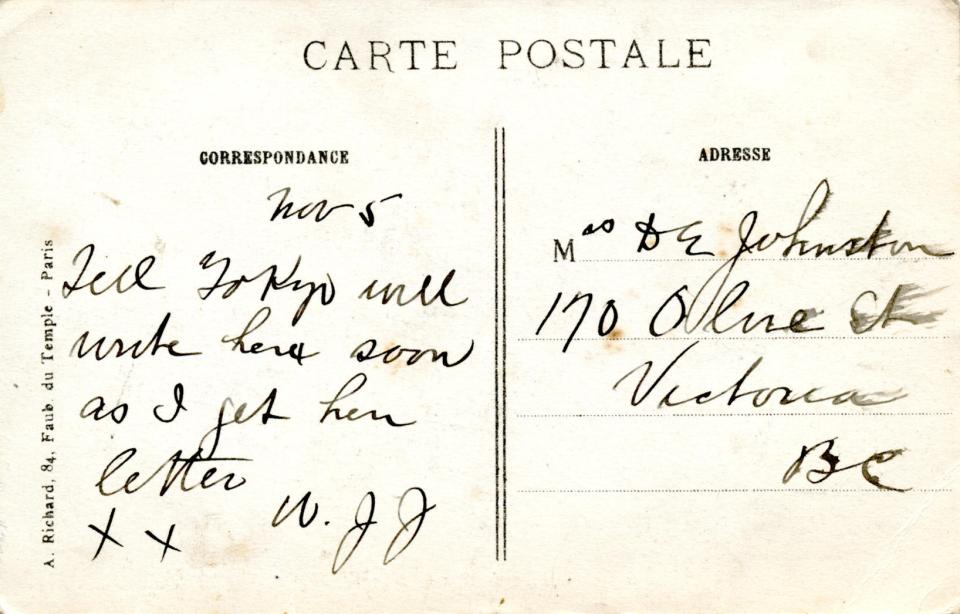 CARTE POSTALE
CORRESPONDANCE
Nov 5
Tell Tokyo will
write her soon
as I get her
letter
W. J J
X X
ADRESSE
Mrs D E Johnston
170 Olive St
Victoria
BC
A. Richard, 84, Faub. du Temple - Paris